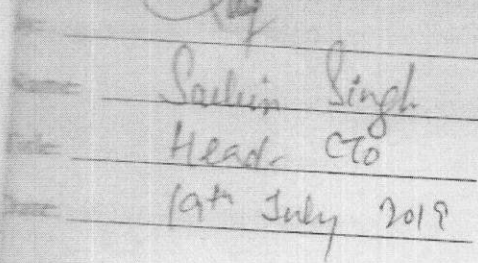 Name: Sachin Singh
Title: Head- CTO
Date: 19th July 2019